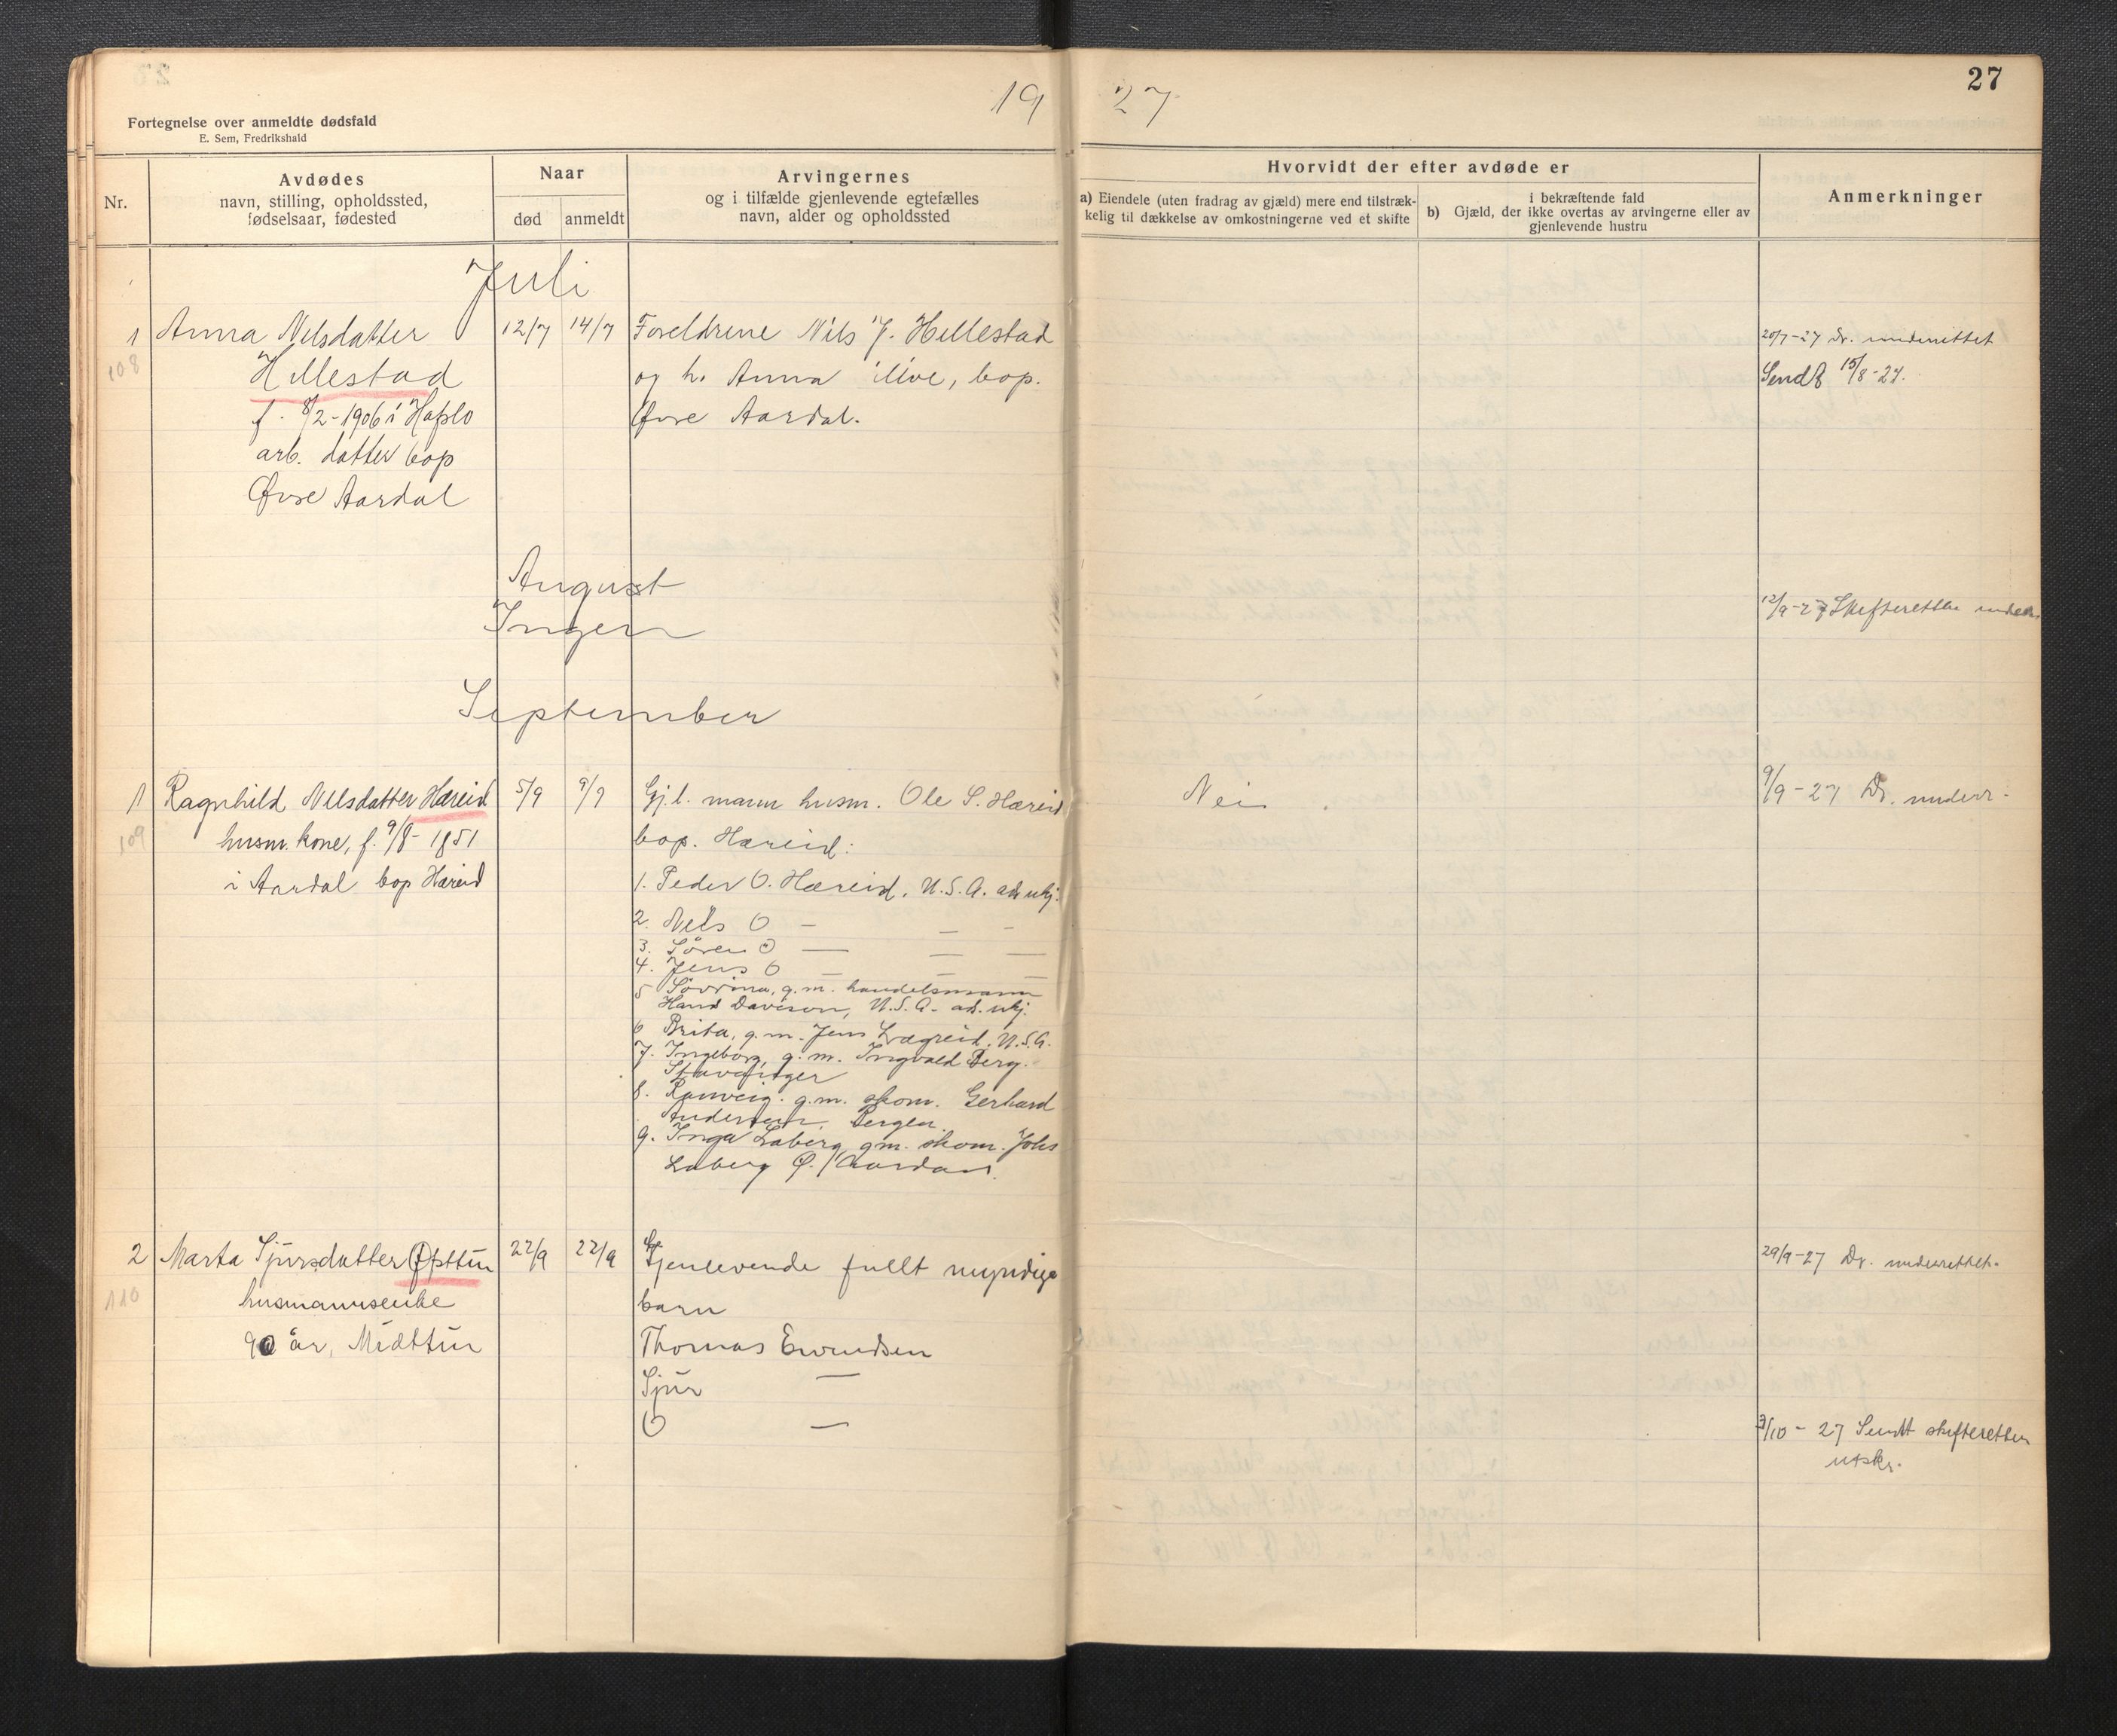 19 27
27
Fortegnelse over anmeldte dødsfald
E. Sem, Fredrikshald
Nr.
Avdødes
navn, stilling, opholdssted,
fødselsaar, fødested
Naar
død
anmeldt
Arvingernes
og i tilfælde gjenlevende egtefælles
navn, alder og opholdssted
Hvorvidt der efter avdøde er
a) Eiendele (uten fradrag av gjæld) mere end tilstræk-
kelig til dækkelse av omkostningerne ved et skifte
i bekræftende fald
b) Gjæld, der ikke overtas av arvingerne eller av
gjenlevende hustru
Anmerkninger
Juli
1 Anna Nilsdatter 12/7 14/7 Foreldrene Nils J. Hillestad 20/7-27 Dr. underrettet
108 Hillestad og h. Anna, bop. Sendt 15/8-27.
f. 8/2-1906 i Hafslo Øvre Aardal.
arb. datter bop
Øvre Aardal
August
Ingen
12/9-27 Skifteretten under
September
1 Ragnhild Nilsdatter Hæreid 5/9 9/9 Gj.l. mann husm. Ole S. Hæreid Nei 9/9-27 Dr. underr.
109 husm. kone, f. 9/8-1851 bop. Hæreid:
i Aardal bop Hæreid 1. Peder O. Hæreid, U.S.A. ad. ukj.
2. Nils O — — —
3. Søren O — — —
4. Jens O — — —
5 Søvrina, g.m. handelsmann
Hand Davison, U.S.A. ad. ukj.
6 Brita, g.m. Jens Lægreid, U.S.A.
7. Ingeborg, g.m. Ingvald Berg.
Stavanger
8. Ranveig. g.m. skom. Gerhard
Andersen, Bergen.
9. Inga Laberg g.m. skom. Johs
Laberg Ø./Aardal.
2 Marta Sjursdatter Opttun 22/9 22/9 Gjenlevende fullt myndige 29/9-27 Dr. underrettet.
110 husmannsenke barn
90 år, Midttun Thomas Eivindsen
Sjur —
O —
3/10-27 Sendt skifteretten
utskr.